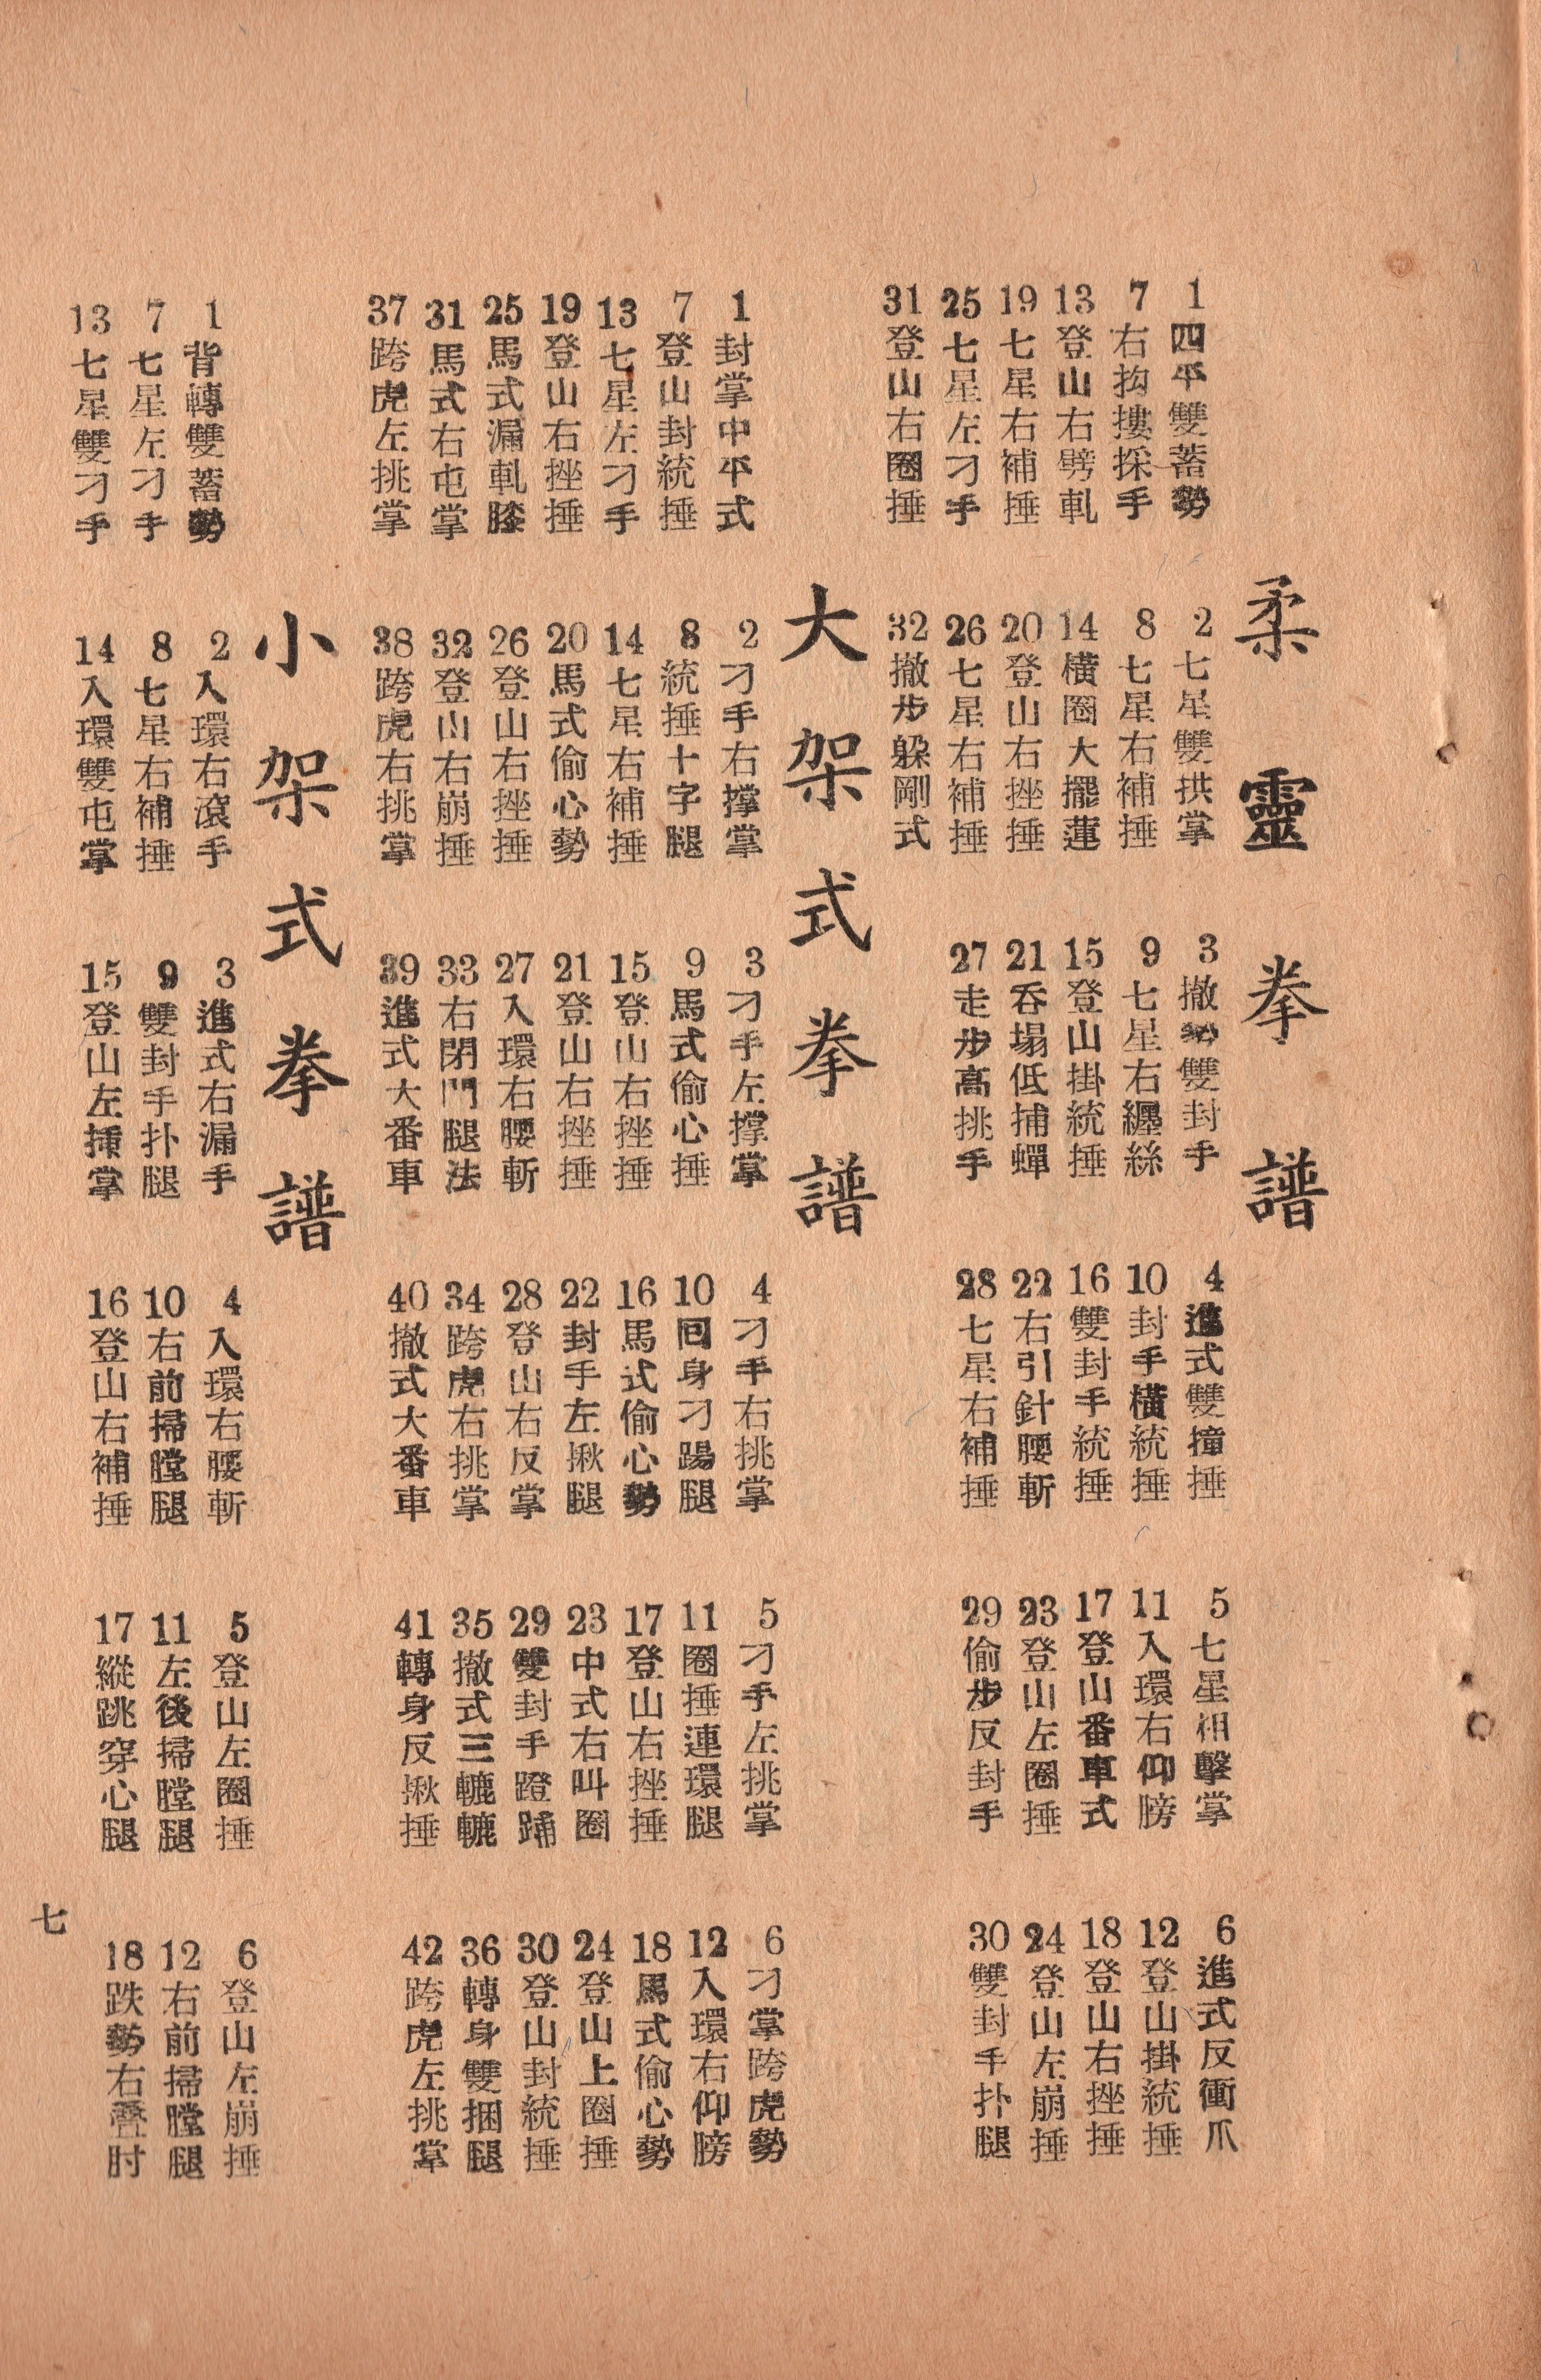 柔靈拳譜
1四平雙蓄勢 2七星雙拱掌 3撤勢雙封手 4進式雙撞捶 5七星相擊掌 6進式反衝爪
7右抅摟採手 8七星右補捶 9七星右纏絲 10封手橫統捶 11入環右仰膀 12登山掛統捶
13登山右劈軋 14橫圈大擺蓮 15登山掛統捶 16雙封手統捶 17登山番車式 18登山右挫捶
19七星右補捶 20登山右挫捶 21吞塌低捕蟬 22右引針腰斬 23登山左圈捶 24登山左崩捶
25七星左刁手 26七星右補捶 27走步高挑手 28七星右補捶 29偷步反封手 30雙封手扑腿
31登山右圈捶 32撤步躱剛式
大架式拳譜
1封掌中平式 2刁手右撑掌 3刁手左撑掌 4刁手右挑掌 5刁手左挑掌 6刁掌跨虎勢
7登山封統捶 8統捶十字腿 9馬式偷心捶 10回身刁踢腿 11圈捶連環腿 12入環右仰膀
13七星左刁手 14七星右補捶 15登山右挫捶 16馬式偷心勢 17登山右挫捶 18馬式偷心勢
19登山右挫捶 20馬式偷心勢 21登山右挫捶 22封手左揪腿 23中式右叫圈 24登山上圈捶
25馬式漏軋膝 26登山右挫捶 27入環右腰斬 28登山右反掌 29雙封手蹬踊 30登山封統捶
31馬式右屯掌 32登山右崩捶 33右閉門腿法 34跨虎右挑掌 35撤式三轆轆 36轉身雙捆腿
37跨虎左挑掌 38跨虎右挑掌 39進式大番車 40撤式大番車 41轉身反揪捶 42跨虎左挑掌
小架式拳譜
1背轉雙蓄勢 2入環右滾手 3進式右漏手 4入環右腰斬 5登山左圈捶 6登山左崩捶
7七星左刁手 8七星右補捶 9雙封手扑腿 10右前掃膛腿 11左後掃膛腿 12右前掃膛腿
13七星雙刁手 14入環雙屯掌 15登山左揷掌 16登山右補捶 17縱跳穿心腿 18跌勢右叠肘
七